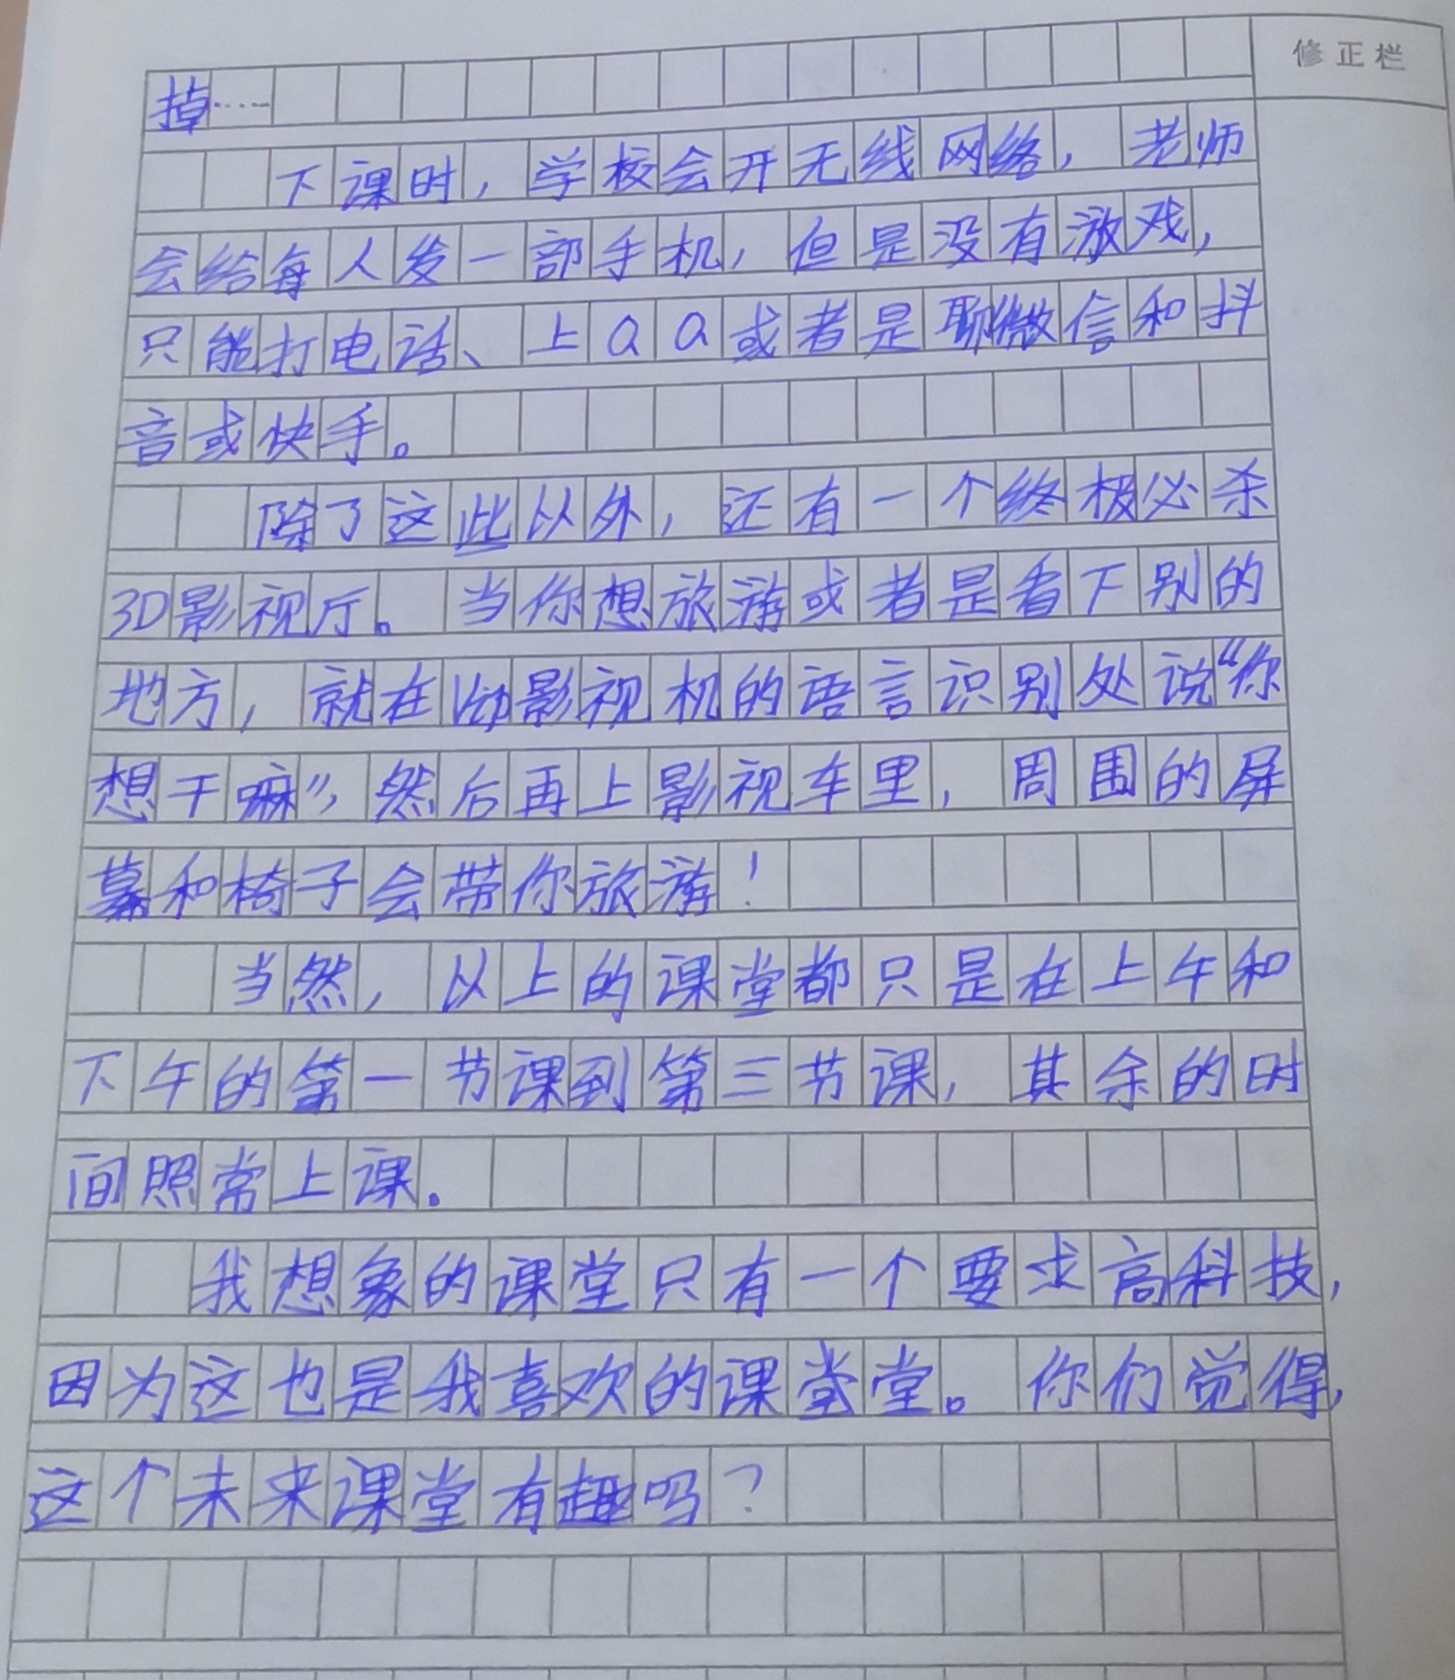 修正栏
掉……
下课时，学校会开无线网络，老师
会给每人发一部手机，但是没有游戏，
只能打电话、上QQ或者是聊微信和抖
音或快手。
除了这此以外，还有一个终极必杀
3D影视厅。当你想旅游或者是看下别的
地方，就在影视机的语言识别处说“你
想干嘛”，然后再上影视车里，周围的屏
幕和椅子会带你旅游！
当然，以上的课堂都只是在上午和
下午的第一节课到第三节课，其余的时
间照常上课。
我想象的课堂只有一个要求高科技，
因为这也是我喜欢的课堂堂。你们觉得，
这个未来课堂有趣吗？